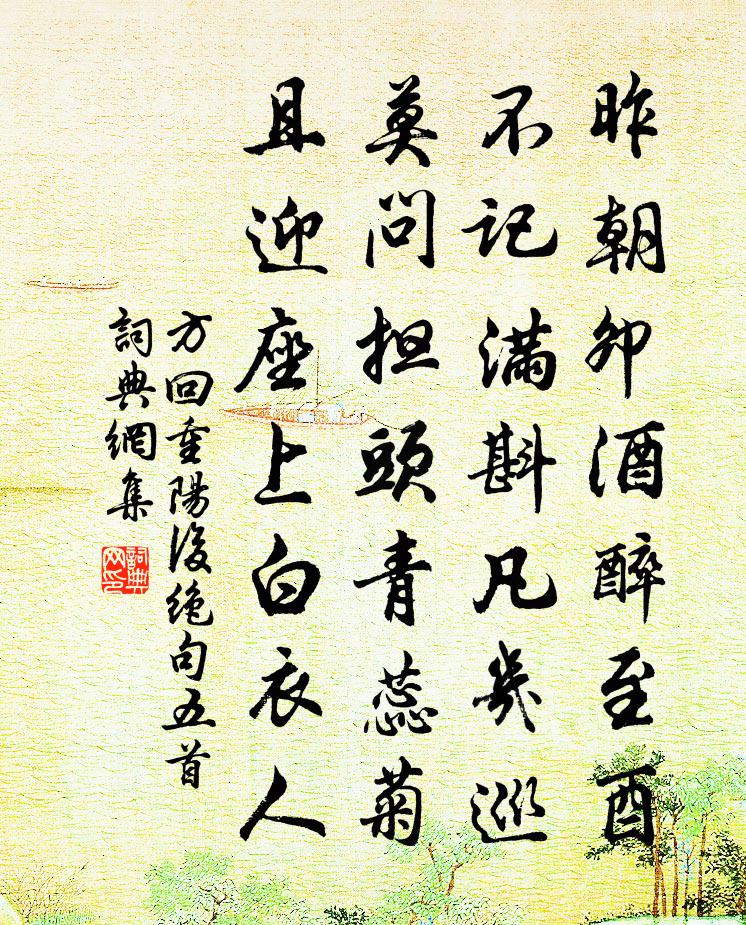 昨朝卯酒醉至酉
不记滿斟凡幾巡
莫问担頭青蕊菊
且迎座上白衣人
方回重陽後绝句五首
詞典網集
詞典网印